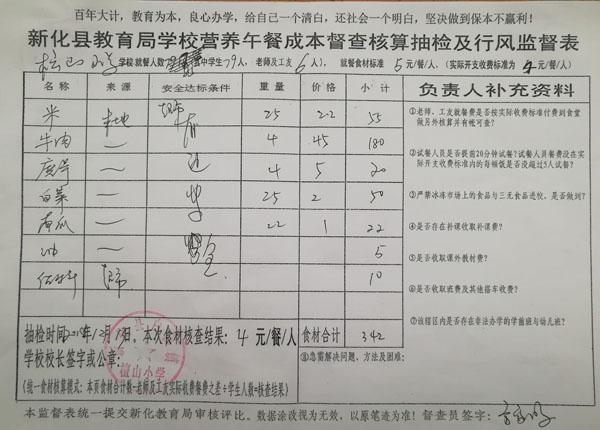 百年大计，教育为本，良心办学，给自己一个清白，还社会一个明白，坚决做到保本不赢利！
新化县教育局学校营养午餐成本督查核算抽检及行风监督表
学校:就餐人数 中学生79人，老师及工友6人， 就餐食材标准 5元/餐/人，(实际开支收费标准为 4元/餐/人)
名称 来源 安全达标条件 重量 价格 小计 负责人补充资料
米 本地 25 2.2 55
牛肉 一 4 45 180
一 4 5 20
白菜 一 25 2 50
南瓜 一 22 1 22
油 一 5
10
①老师、工友就餐费是否按实际收费标准付费到食堂做另外核算并有帐可查?
②试餐人员是否提前20分钟试餐?试餐人员餐费没在实际开支收费标准内的每顿饭是否没超过5人试餐?
③严禁冰冻市场上的食品与三无食品进校，是否做到?
④是否存在补课收取补课费?
⑤是否收取课外教材费?
⑥是否收取班费及其他搭车收费?
⑦该辖区内是否存在非法办学的学前班与幼儿班?
抽检时间:2018年12月13日。本次食材核查结果: 4 元/餐/人 食材合计 342
学校校长签字或公章:
山小学
⑧急需解决问题、方法及困难:
(统一食材核算模式：本页食材合计数-老师及工友实际收费餐费之差÷学生人数=核查结果)
本监督表统一提交新化教育局审核评比。数据涂改视为无效，以原笔迹为准！督查员签字: